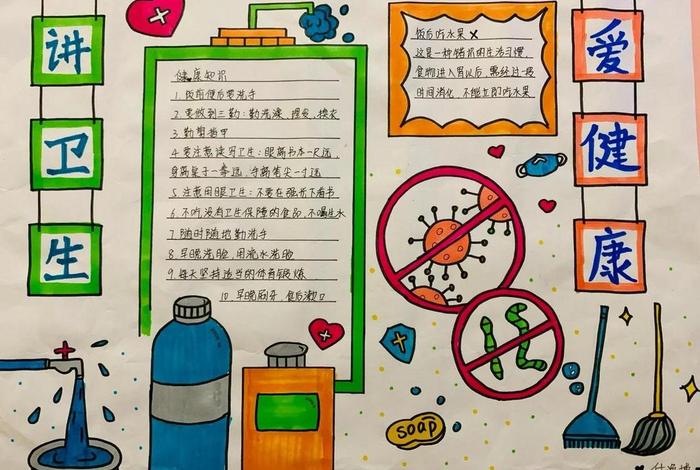 讲卫生
健康知识
1.饭前便后要洗手
2.要做到三勤：勤洗澡、理发、换衣
3.勤剪指甲
4.要注意读写卫生：眼离书本一尺远，
身离桌子一拳远，手离笔尖一寸远
5.注意用眼卫生：不要在强光下看书
6.不吃没有卫生保障的食品，不喝生水
7.随时随地勤洗手
8.早晚洗脸，用流水洗脸
9.每天坚持适当的体育锻炼
10.早晚刷牙，食后漱口
饭后吃水果 ×
这是一种错误的生活习惯，
食物进入胃以后，需经过一段
时间消化，不能立即吃水果
爱健康
soap